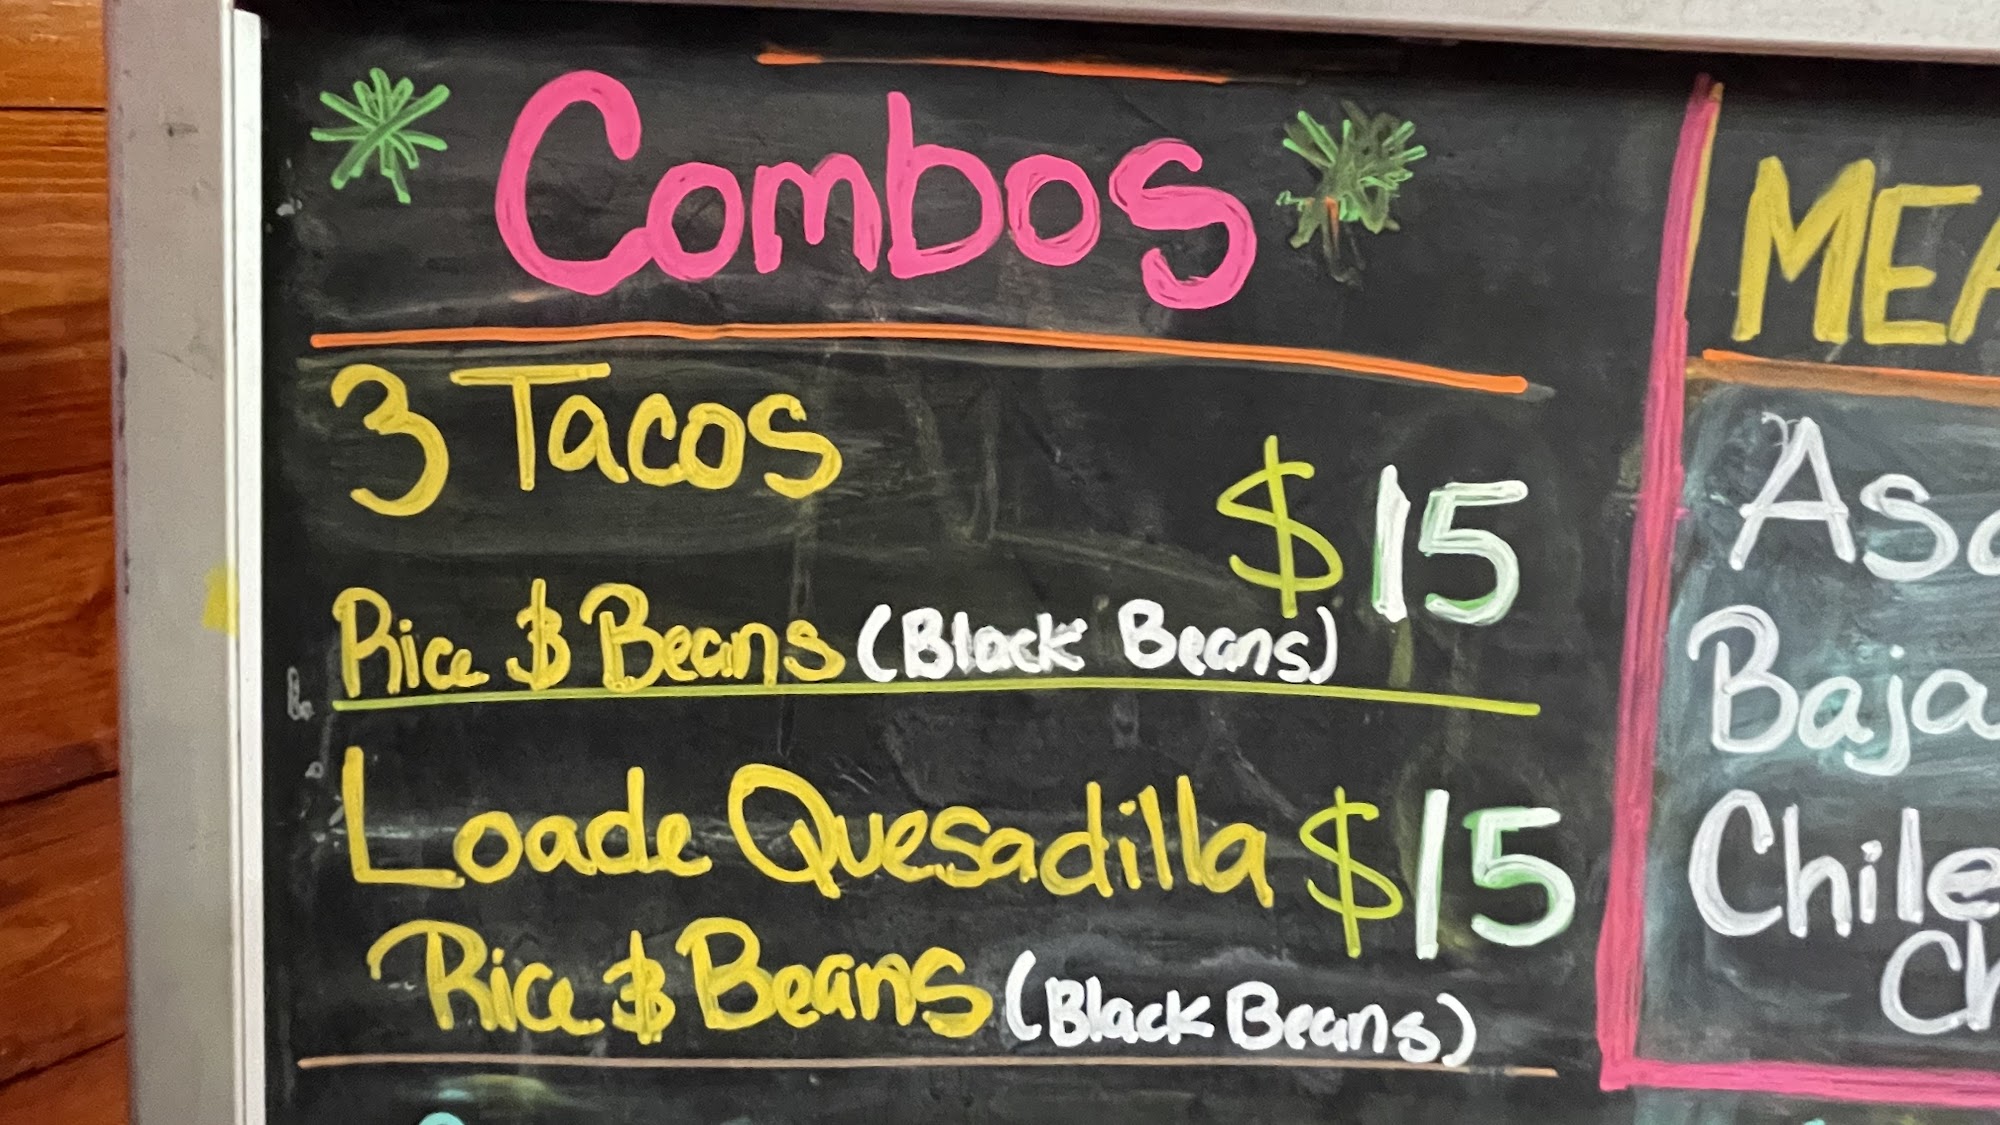 Combos
3 Tacos
$15
Rice & Beans (Black Beans)
Loade Quesadilla $15
Rice & Beans (Black Beans)
Baja
Chile